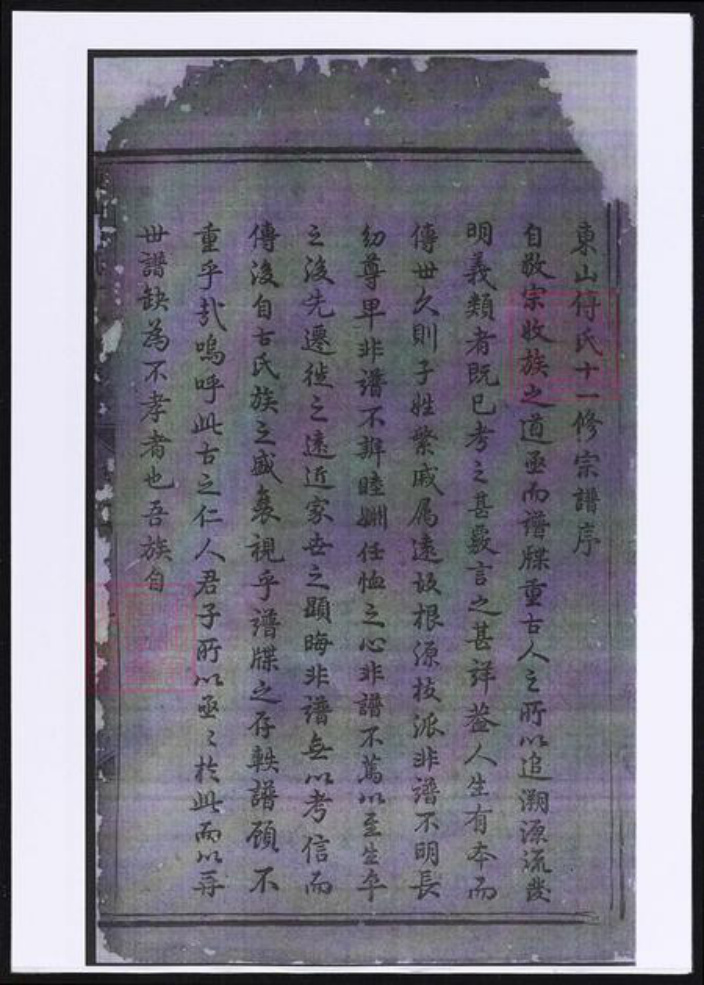 東山傅氏十一修宗譜序
自敬宗收族之道亟而譜牒重古人之所以追溯源流發
明義類者既已考之甚覈言之甚詳蓋人生有本而
傳世久則子姓繁戚属遠故根源枝派非譜不明長
幼尊卑非譜不辨睦婣任恤之心非譜不篤以至生卒
之後先遷徙之遠近家世之顯晦非譜無以考信而
傳後自古氏族之盛衰視乎譜牒之存軼譜顧不
重乎哉嗚呼此古之仁人君子所以亟〻於此而以再
世譜缺為不孝者也吾族自